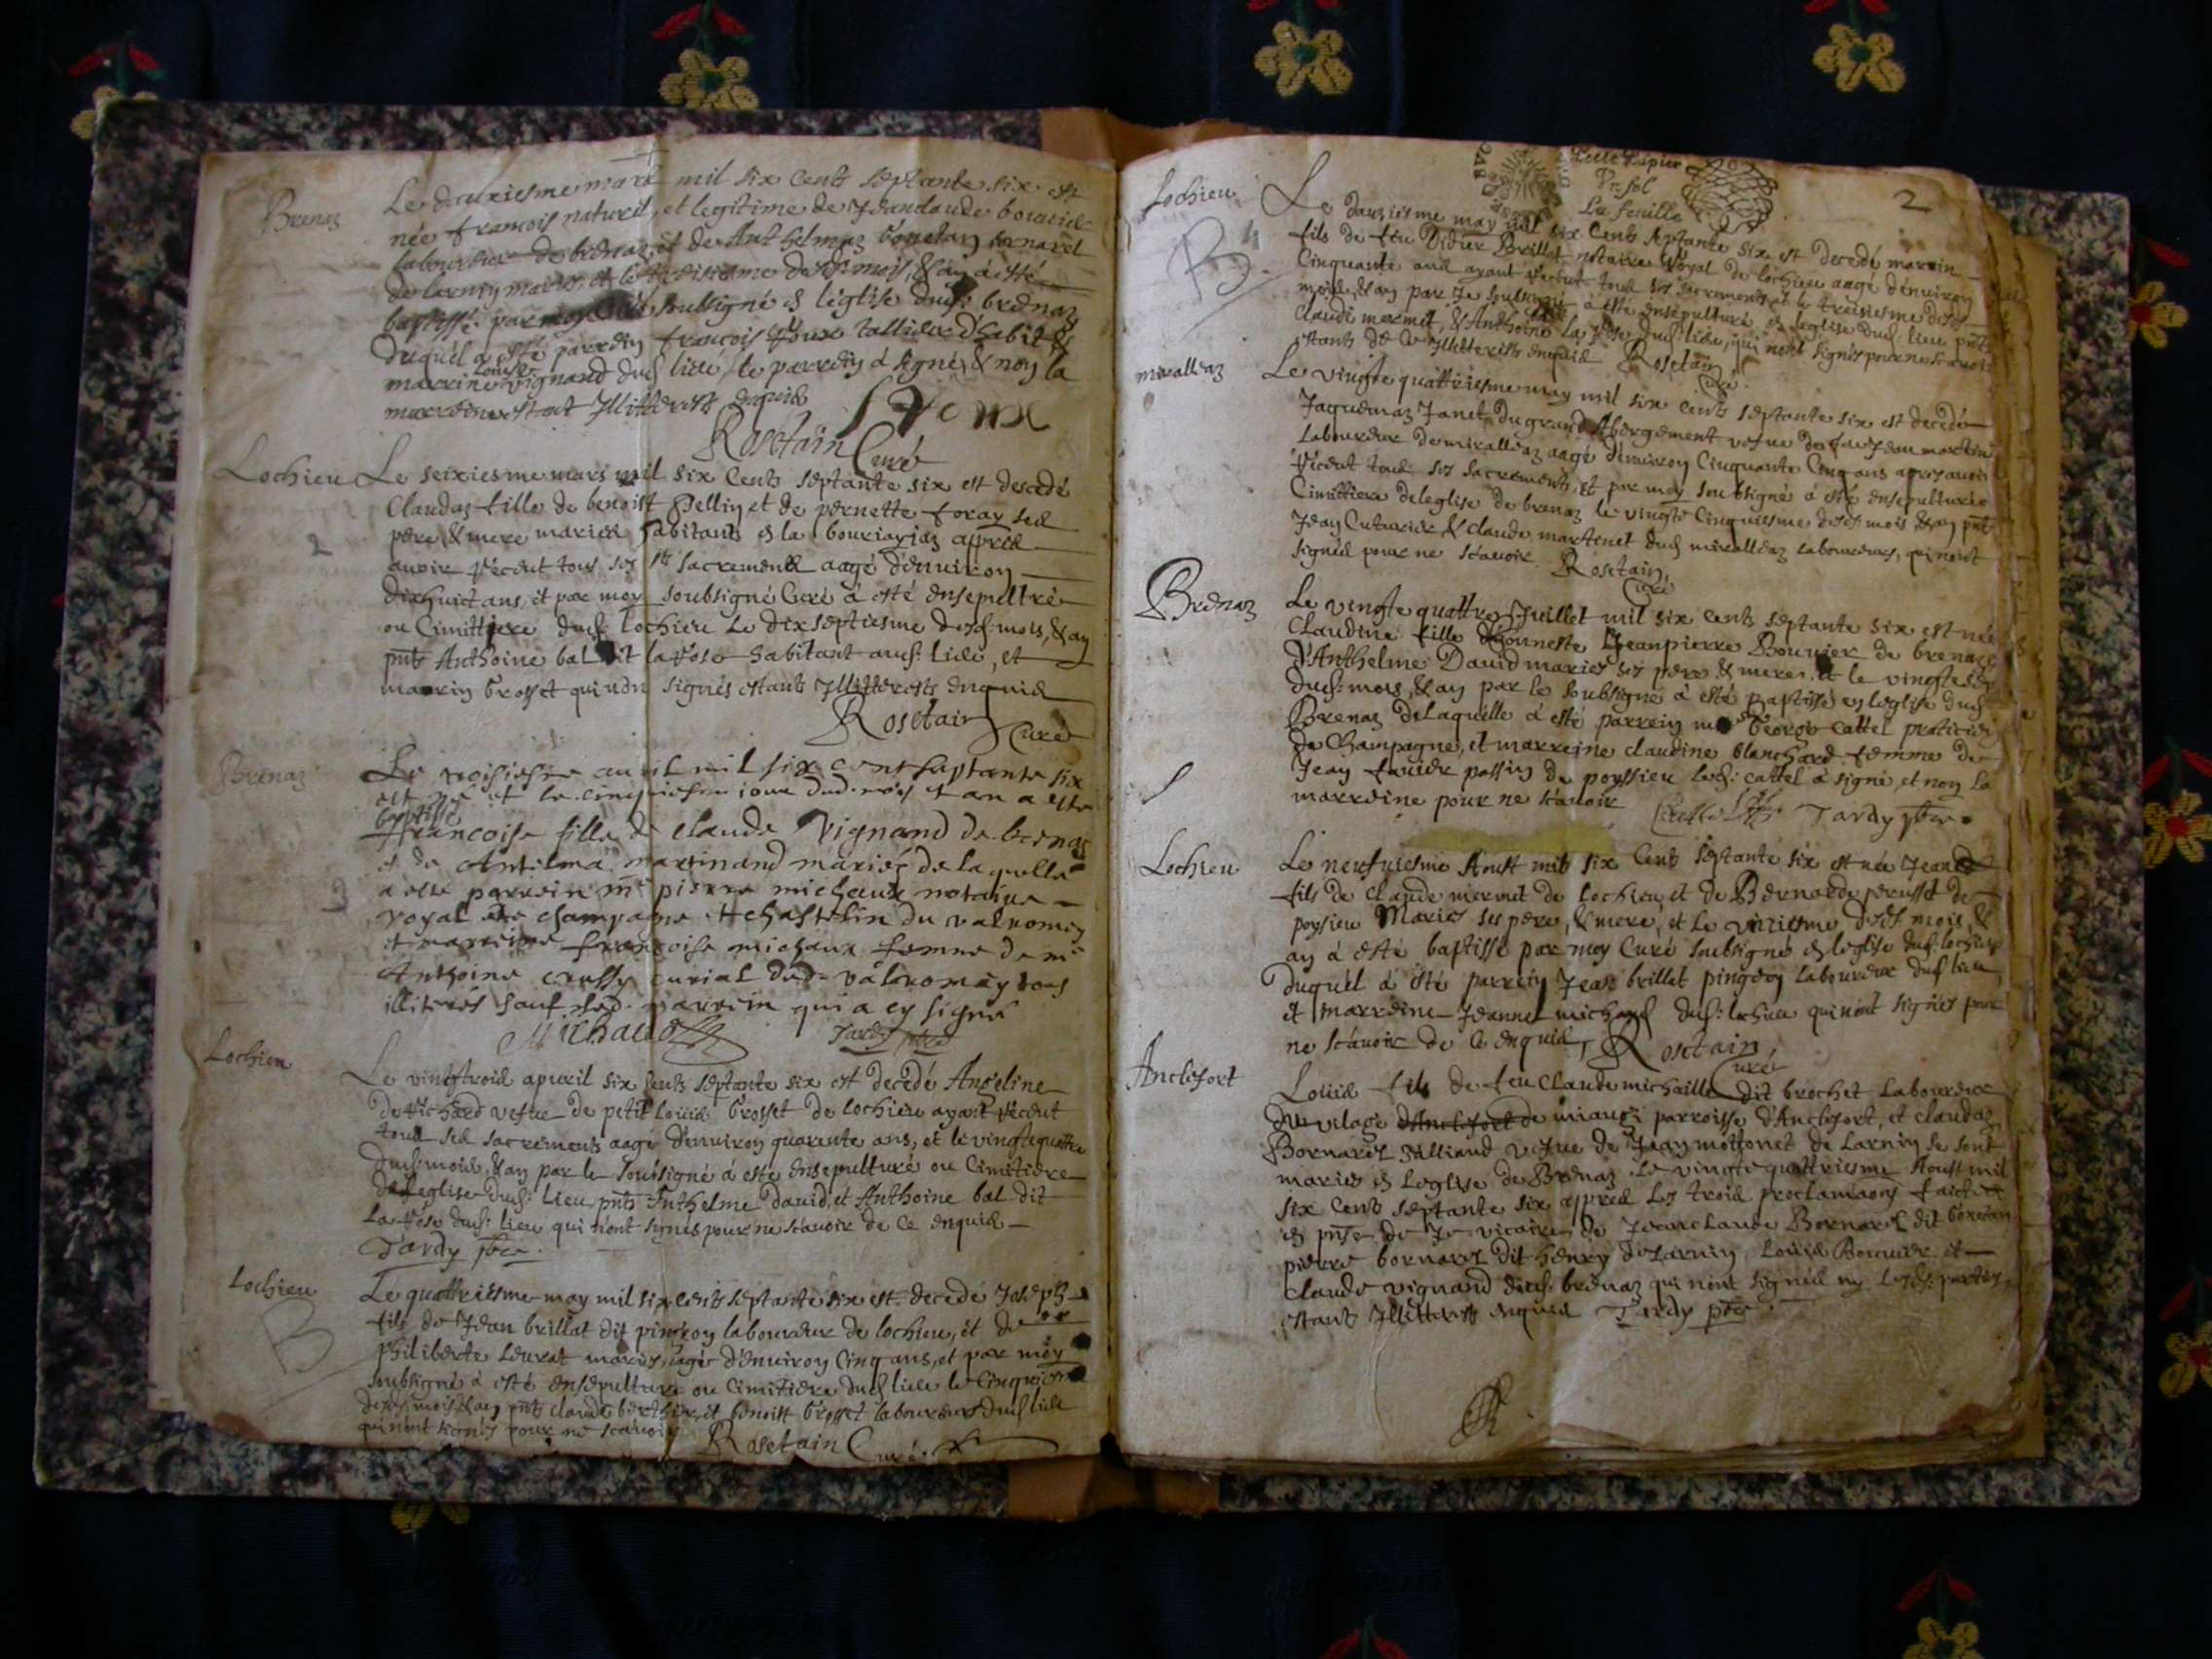 Brenaz
Le dauxiesme mars mil six Cents septante six est
née francois naturel, et legitime de Jeanclaude bouvier
laboureur de brenaz, et de Anthelmaz bornarel
de larnin mariés, et le troisiesme desd: mois, & an à esté
baptissé par moy soubsigné en l'église dud: brenaz
duquel à esté parrein francois tallieur d'habit &
marrine Louise vignand dud lieu, le parrein à signé, & non la
marreine estant Illitterests enquis
Rosetain Curé
Lochieu
Le seixiesme mars mil six Cents septante six est decedé
Claudaz fille de benoist Pellin et de pernette foray ses
pere, & mere mariés habitants en la bouriariaz apprès
auoir receut tous ses sts sacrements aagé d'enuiron
dixhuict ans, et par moy soubsigné Curé à esté ensepultré
ou Cimittiere dud: lochieu Le dixseptiesme desd: mois, & an
pnts Anthoine bal dit la rose habitant aud: Lieu, et
maurin brosset qui non signés estants Illitterests enquis
Rosetain Curé
Brenaz
Le troisiesme auril mil six cent septante six
est née et le cinquiesme iour dud. mois et an a esté
baptisée
francoise fille de claude Vignand de brenaz
et de Antelma martinand mariés de laquelle
a esté parrein me pierre michaux notaire
royal de champagne et chastelin du valromey
et marreine francoise michaux femme de me
Anthoine crussy curial dud. valromey tous
illiterés sauf led. parrein qui a cy signé
Michaud Tardy pbre
Lochieu
Le vingtroid apuril six Cents septante six est decedé Angeline
de richard vefue de petit Louis brosset de lochieu ayant receut
tous ses sacrements aagé d'enuiron quarente ans, et le vingtequattre
dud: mois, & an par le soussigné à esté ensepulturé ou Cimitiere
de l'eglise dud: lieu pnts Anthelme Dauid, et Anthoine bal dit
La rose dud: lieu qui n'ont signés pour ne scauoir de ce enquis
Tardy pbre.
Lochieu
B
Le quattriesme may mil six cents septante six est decedé Joseph
fils de Jean brillat dit pingeon laboureur de lochieu, et de
philiberte Leurat mariés, aagé d'enuiron Cinq ans, et par moy
soubsigné à esté ensepulture ou Cimitiere dud lieu le Cinquiesme
desd: mois & an pnts claude berthier, et benoist brosset laboureurs dud lieu
qui n'ont signés pour ne scauoir
Rosetain Curé
2
Petit Papier
Vn sol
La feuille
Lochieu
B
Le dauziesme may mil six Cents septante six est decedé maurin
fils de feu Didier Brillat notaire Royal de lochieu aagé d'enuiron
Cinquante ans ayant receut tous ses sacrements et le treisiesme desd:
mois, & an par Je soubsigné à esté ensepulturé en leglise dud: lieu pnts
claude mermet, & Anthoine la rose dud: lieu, qui n'ont signés pour ne scauoir
estants de ce Illitterests enquis Rosetain Curé
miralleaz
Le vingtequattriesme may mil six Cents septante six est decedé
Jaquemaz Janet du grand Abergement vefue de feu Jean martin
Laboureur de miralleaz aagé d'enuiron Cinquante Cinq ans apres auoir
receut tous ses sacrements, et par moy soubsigné à esté ensepulturée
Cimittiere deleglise de brenaz le vingte Cinquiesme desd: mois & an pnts
Jean Cuturier & claude martenet dud miralleaz laboureurs, qui n'ont
signés pour ne scauoir Rosetain Curé
Brenaz
Le vingte quattre Juillet mil six Cents septante six est née
Claudine fille d'honneste Jeanpierre Bouuier de brenaz
d'Anthelme Dauid mariés ses pere & mere. et le vingte
dud: mois, & an par le soubsigné à esté baptissé en leglise dud
Brenaz de Laquelle à esté parrein me George Cattel praticien
de Champagne, et marreine claudine blanchard femme de
Jean fauier passin de poyssieu led: cattel à signé, et non La
marreine pour ne scauoir Tardy pbre.
Lochieu
Le neufuiesme Aoust mil six Cents septante six est née Jean
fils de claude mermet de lochieu, et de Bernarde perusset de
poysieu Mariés ses pere, & mere, et Le vnziesme desd: mois, &
an à esté baptissé par moy Curé soubsigné en leglise dud: lochieu
duquel à esté parrein Jean brillat pingeon laboureur dud lieu
et marreine Jeanne michaud dud: lochieu qui n'ont signés pour
ne scauoir de ce enquis, Rosetain, Curé
Anclefort
Louis fils de feu claude michaille dit brochet Laboureur
du vilage d'Anclefort de miaugi parroisse d'Anclefort, et claudaz
Bornarel Gilliand vefue de Jean mottonet de Larnin se sont
mariés en Leglise de Brenaz Le vingte quattriesme Aoust mil
six Cents septante six apprès Les troid proclamaons faictes
en pnse de Je vicaire de Jeanclaude Bornarel dit bouetan
pierre bornarel dit henry de Larnin, Louis Bouuier et
claude vignand dud: brenaz qui n'ont signés ny lesd: parties
estants Illitterests enquis Tardy pbre.